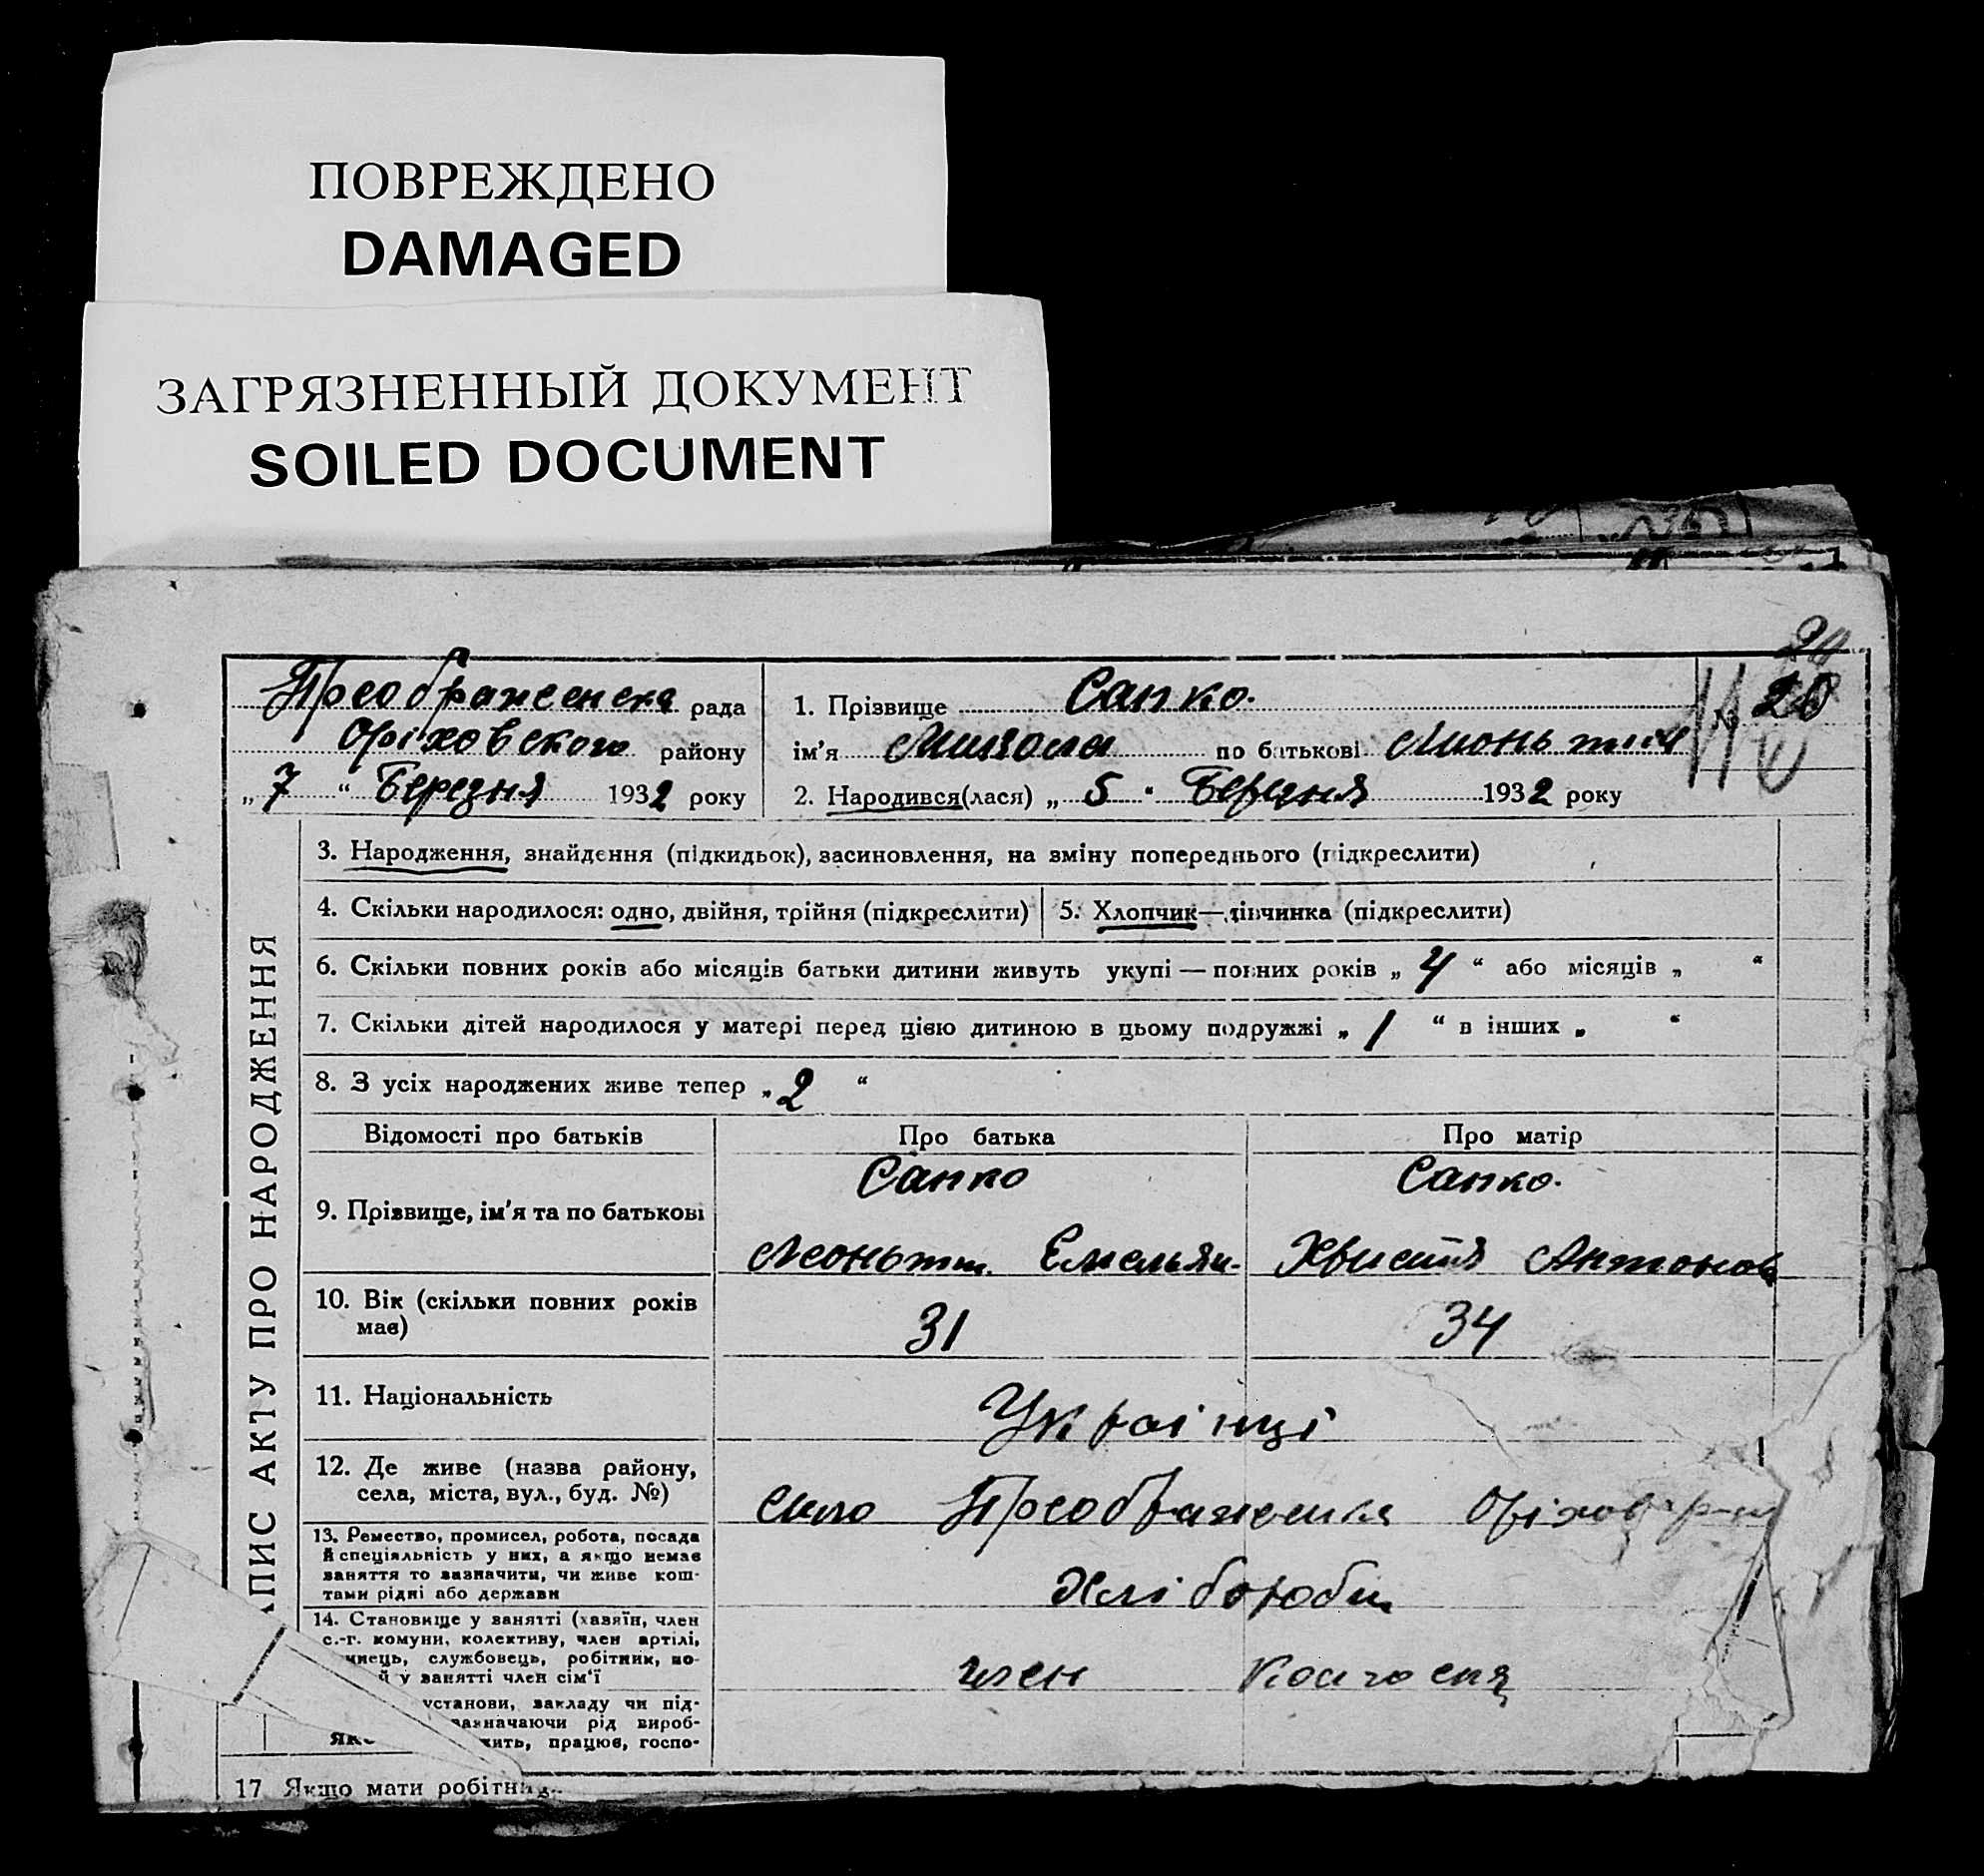 ПОВРЕЖДЕНО
DAMAGED
ЗАГРЯЗНЕННЫЙ ДОКУМЕНТ
SOILED DOCUMENT
Преображенска рада
Оріховского району
„7“ Березня 1932 року
1. Прізвище Сапко.
ім'я Микола по батькові Лионьтий
2. Народився(лася) „5“ Березня 1932 року
№ 20
ЗАПИС АКТУ ПРО НАРОДЖЕННЯ
3. Народження, знайдення (підкидьок), засиновлення, на зміну попереднього (підкреслити)
4. Скільки народилося: одно, двійня, трійня (підкреслити)
5. Хлопчик—дівчинка (підкреслити)
6. Скільки повних років або місяців батьки дитини живуть укупі — повних років „4“ або місяців „ “
7. Скільки дітей народилося у матері перед цією дитиною в цьому подружжі „1“ в інших „ “
8. З усіх народжених живе тепер „2“
Відомості про батьків
Про батька
Про матір
9. Прізвище, ім'я та по батькові
Сапко
Леоньти. Емельян.
Сапко.
Хвистя Антонов
10. Вік (скільки повних років
має)
31
34
11. Національність
Украінці
12. Де живе (назва району,
села, міста, вул., буд. №)
село Преображенка Оріхов р-н
13. Ремество, промисел, робота, посада
й спеціяльність у них, а якщо немає
заняття то зазначити, чи живе кош-
тами рідні або держави
Хлібороби
14. Становище у занятті (хазяїн, член
с.-г. комуни, колективу, член артілі,
службовець, робітник, по-
й у занятті член сім'ї
член колгоспу
установи, закладу чи під-
зазначаючи рід вироб-
жить, працює, госпо-
17 Якщо мати робітниц